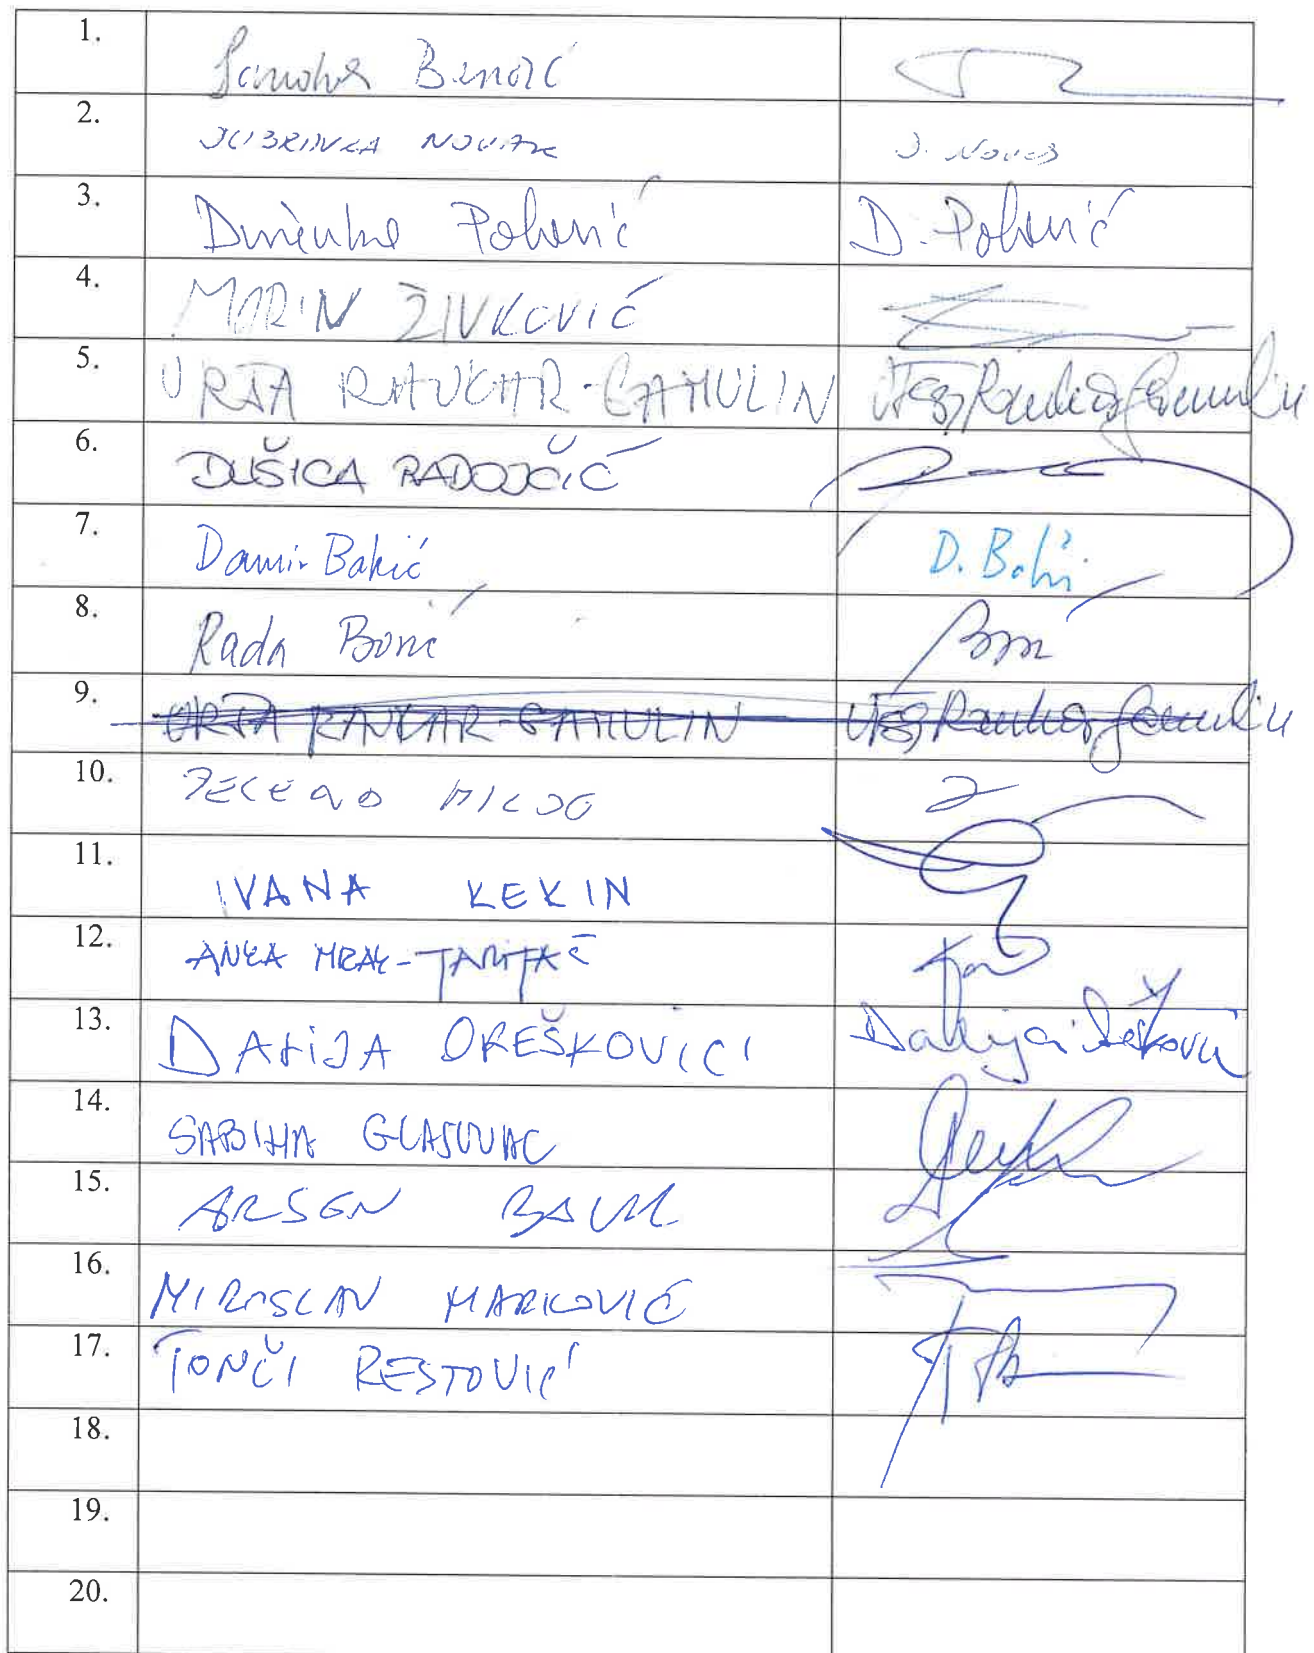 1. Sandra Benčić
2. JUBRINKA NOVAK J. Novak
3. Dušenka Polovnić D. Polovnić
4. MARIN ŽIVKOVIĆ
5. URŠA RAUKAR-GAMULIN Urša Raukar Gamulin
6. DUŠICA RADOJČIĆ
7. Damir Bakić D. Bakić
8. Rada Borić Borić
9. URŠA RAUKAR-GAMULIN Urša Raukar Gamulin
10.
11. IVANA KEKIN
12. ANKA MRAK-TARITAŠ
13. DALIJA OREŠKOVIĆ Dalija Orešković
14. SABINA GLASOVAC
15. ARSEN BAUK
16. MIROSLAV MARKOVIĆ
17. TONČI RESTOVIĆ
18.
19.
20.